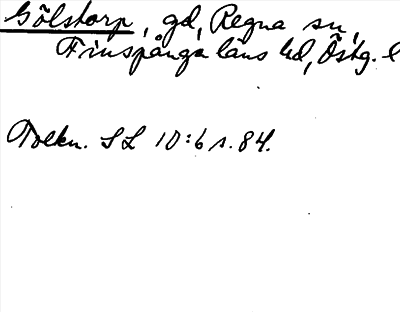 Gölstorp, gd, Regna sn,
Finspånga läns hd, Östg. l
Tolkn. SL 10:6 s. 84.